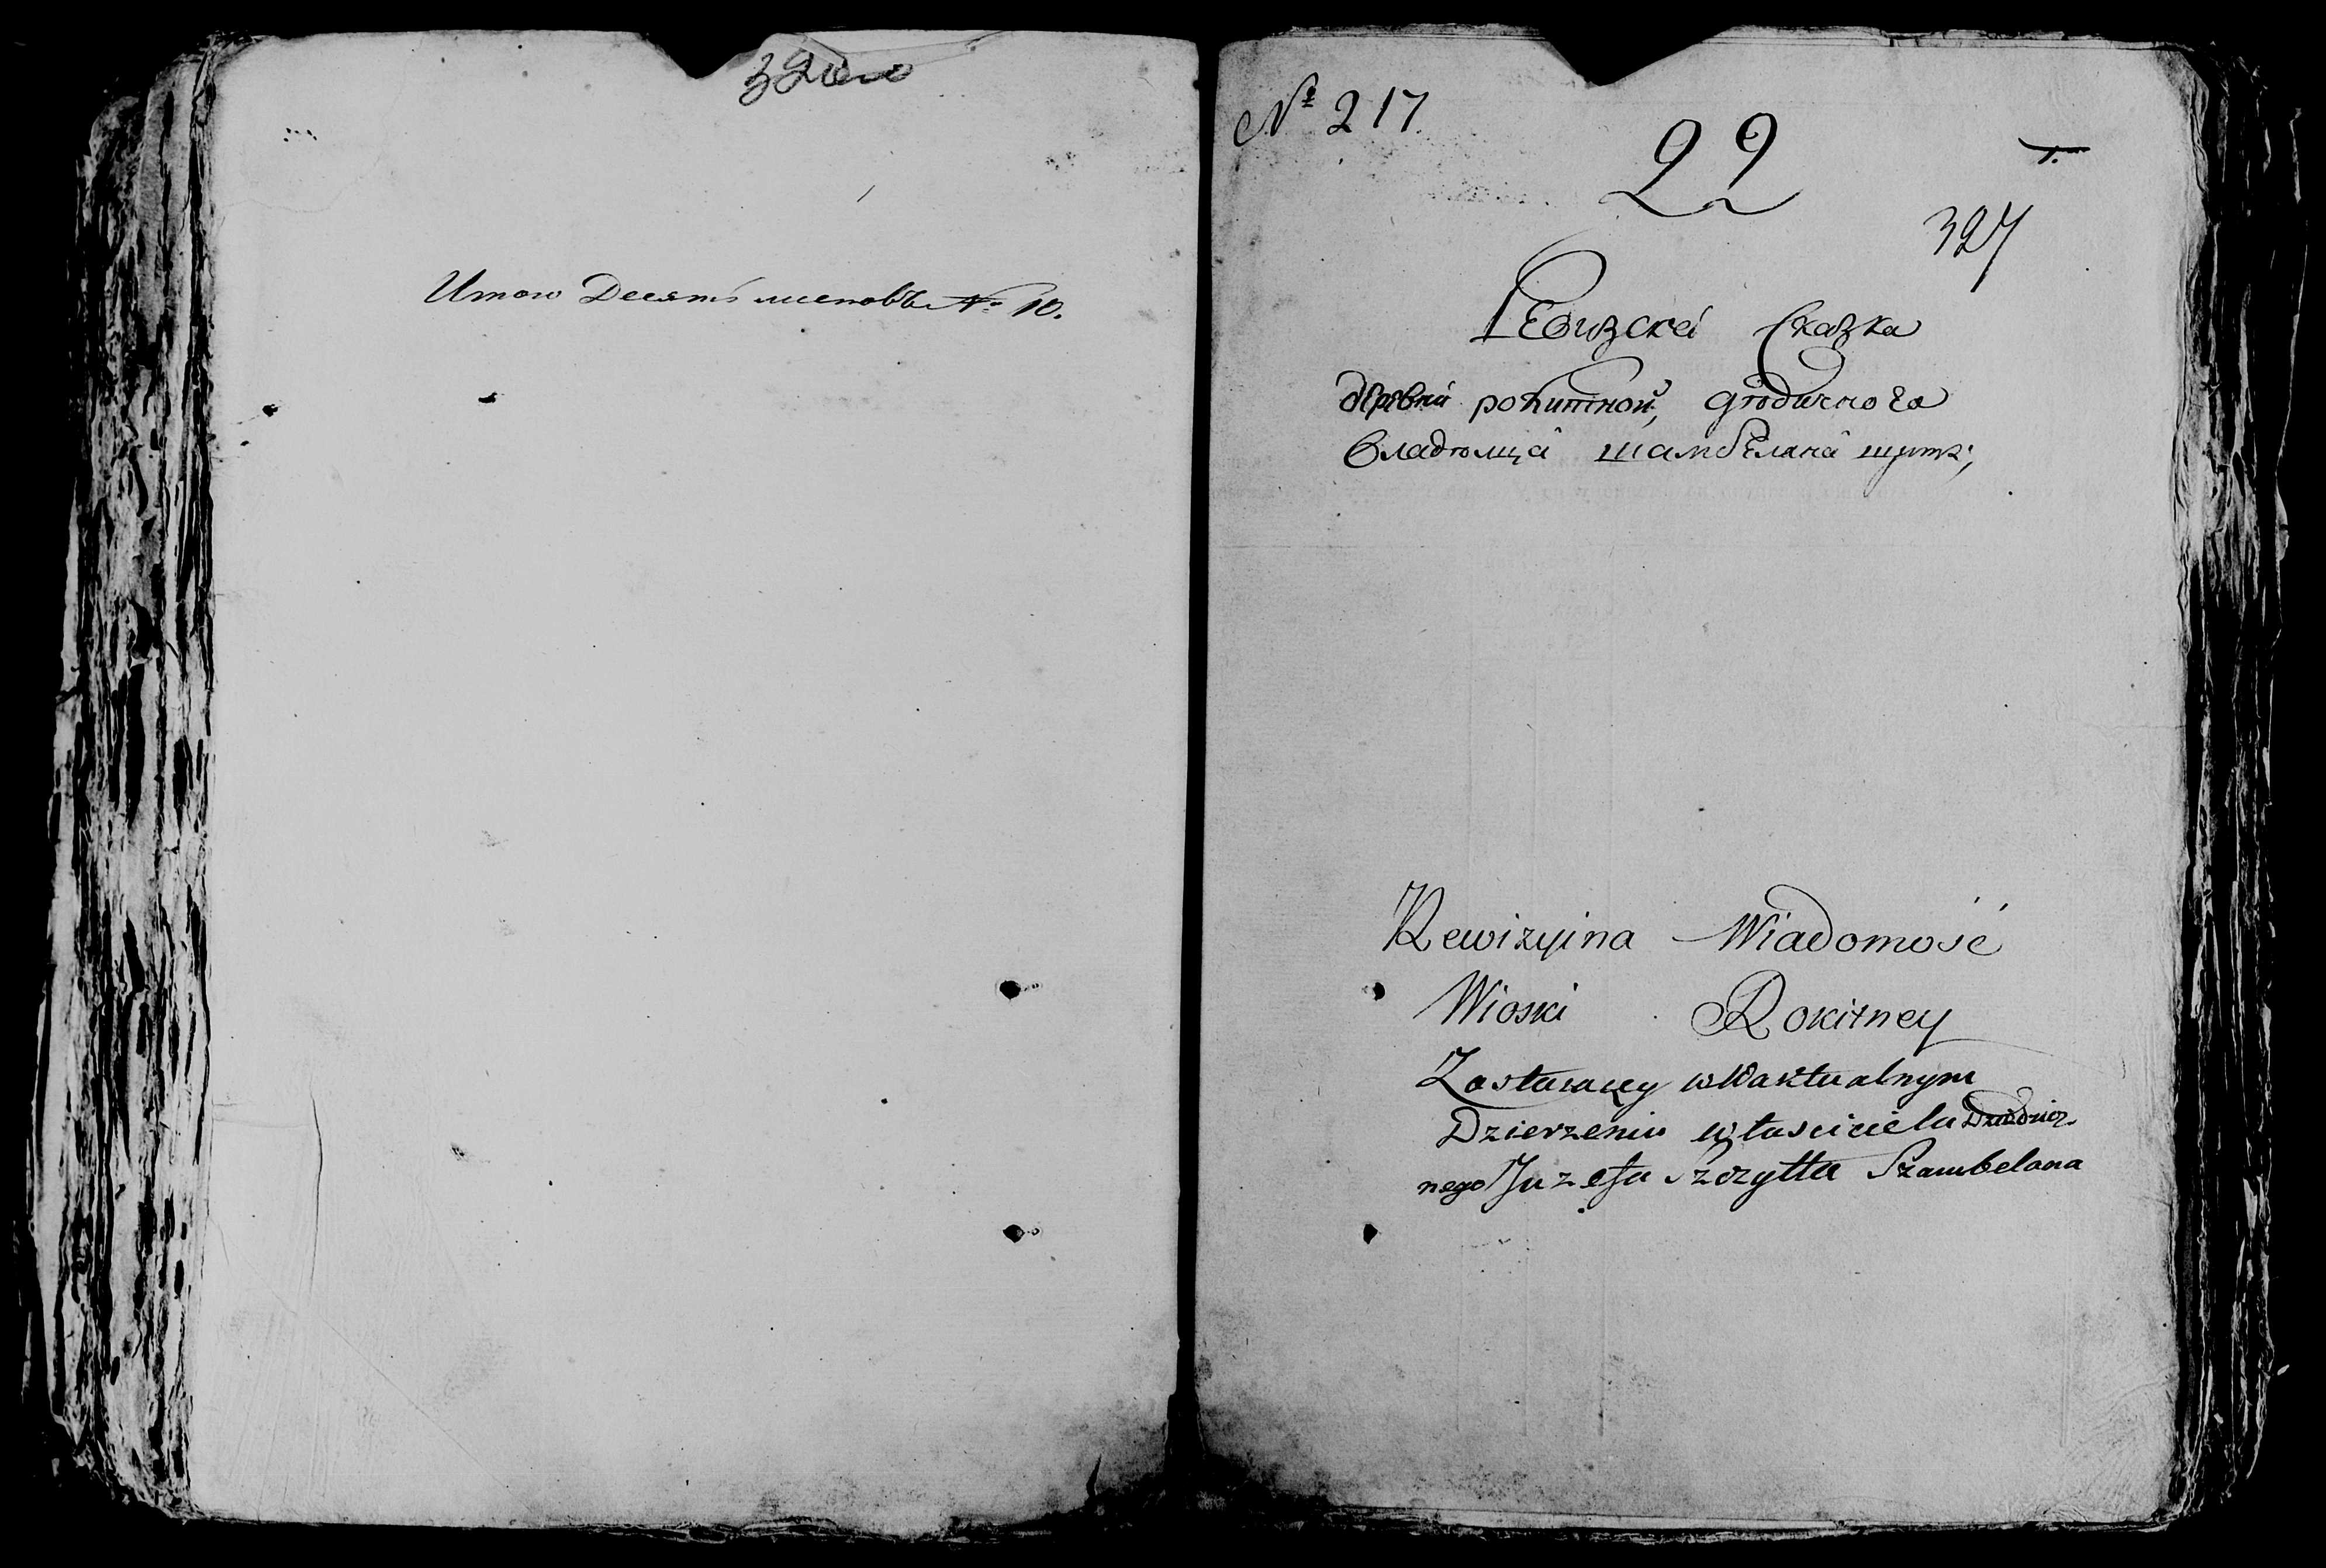 Итого Десять листовъ № 10.
№ 217
22
1.
327
Ревизскеі Сказка
деревни рокитной, дтодичного
владтолца шамбелана щита;
Rewizyina Wiadomość
Wioski Rokitney
Zostaiącey w Waktualnym
Dzierzeniu własciciela Dziedzicz-
nego Juzefa Szczytta Szambelana